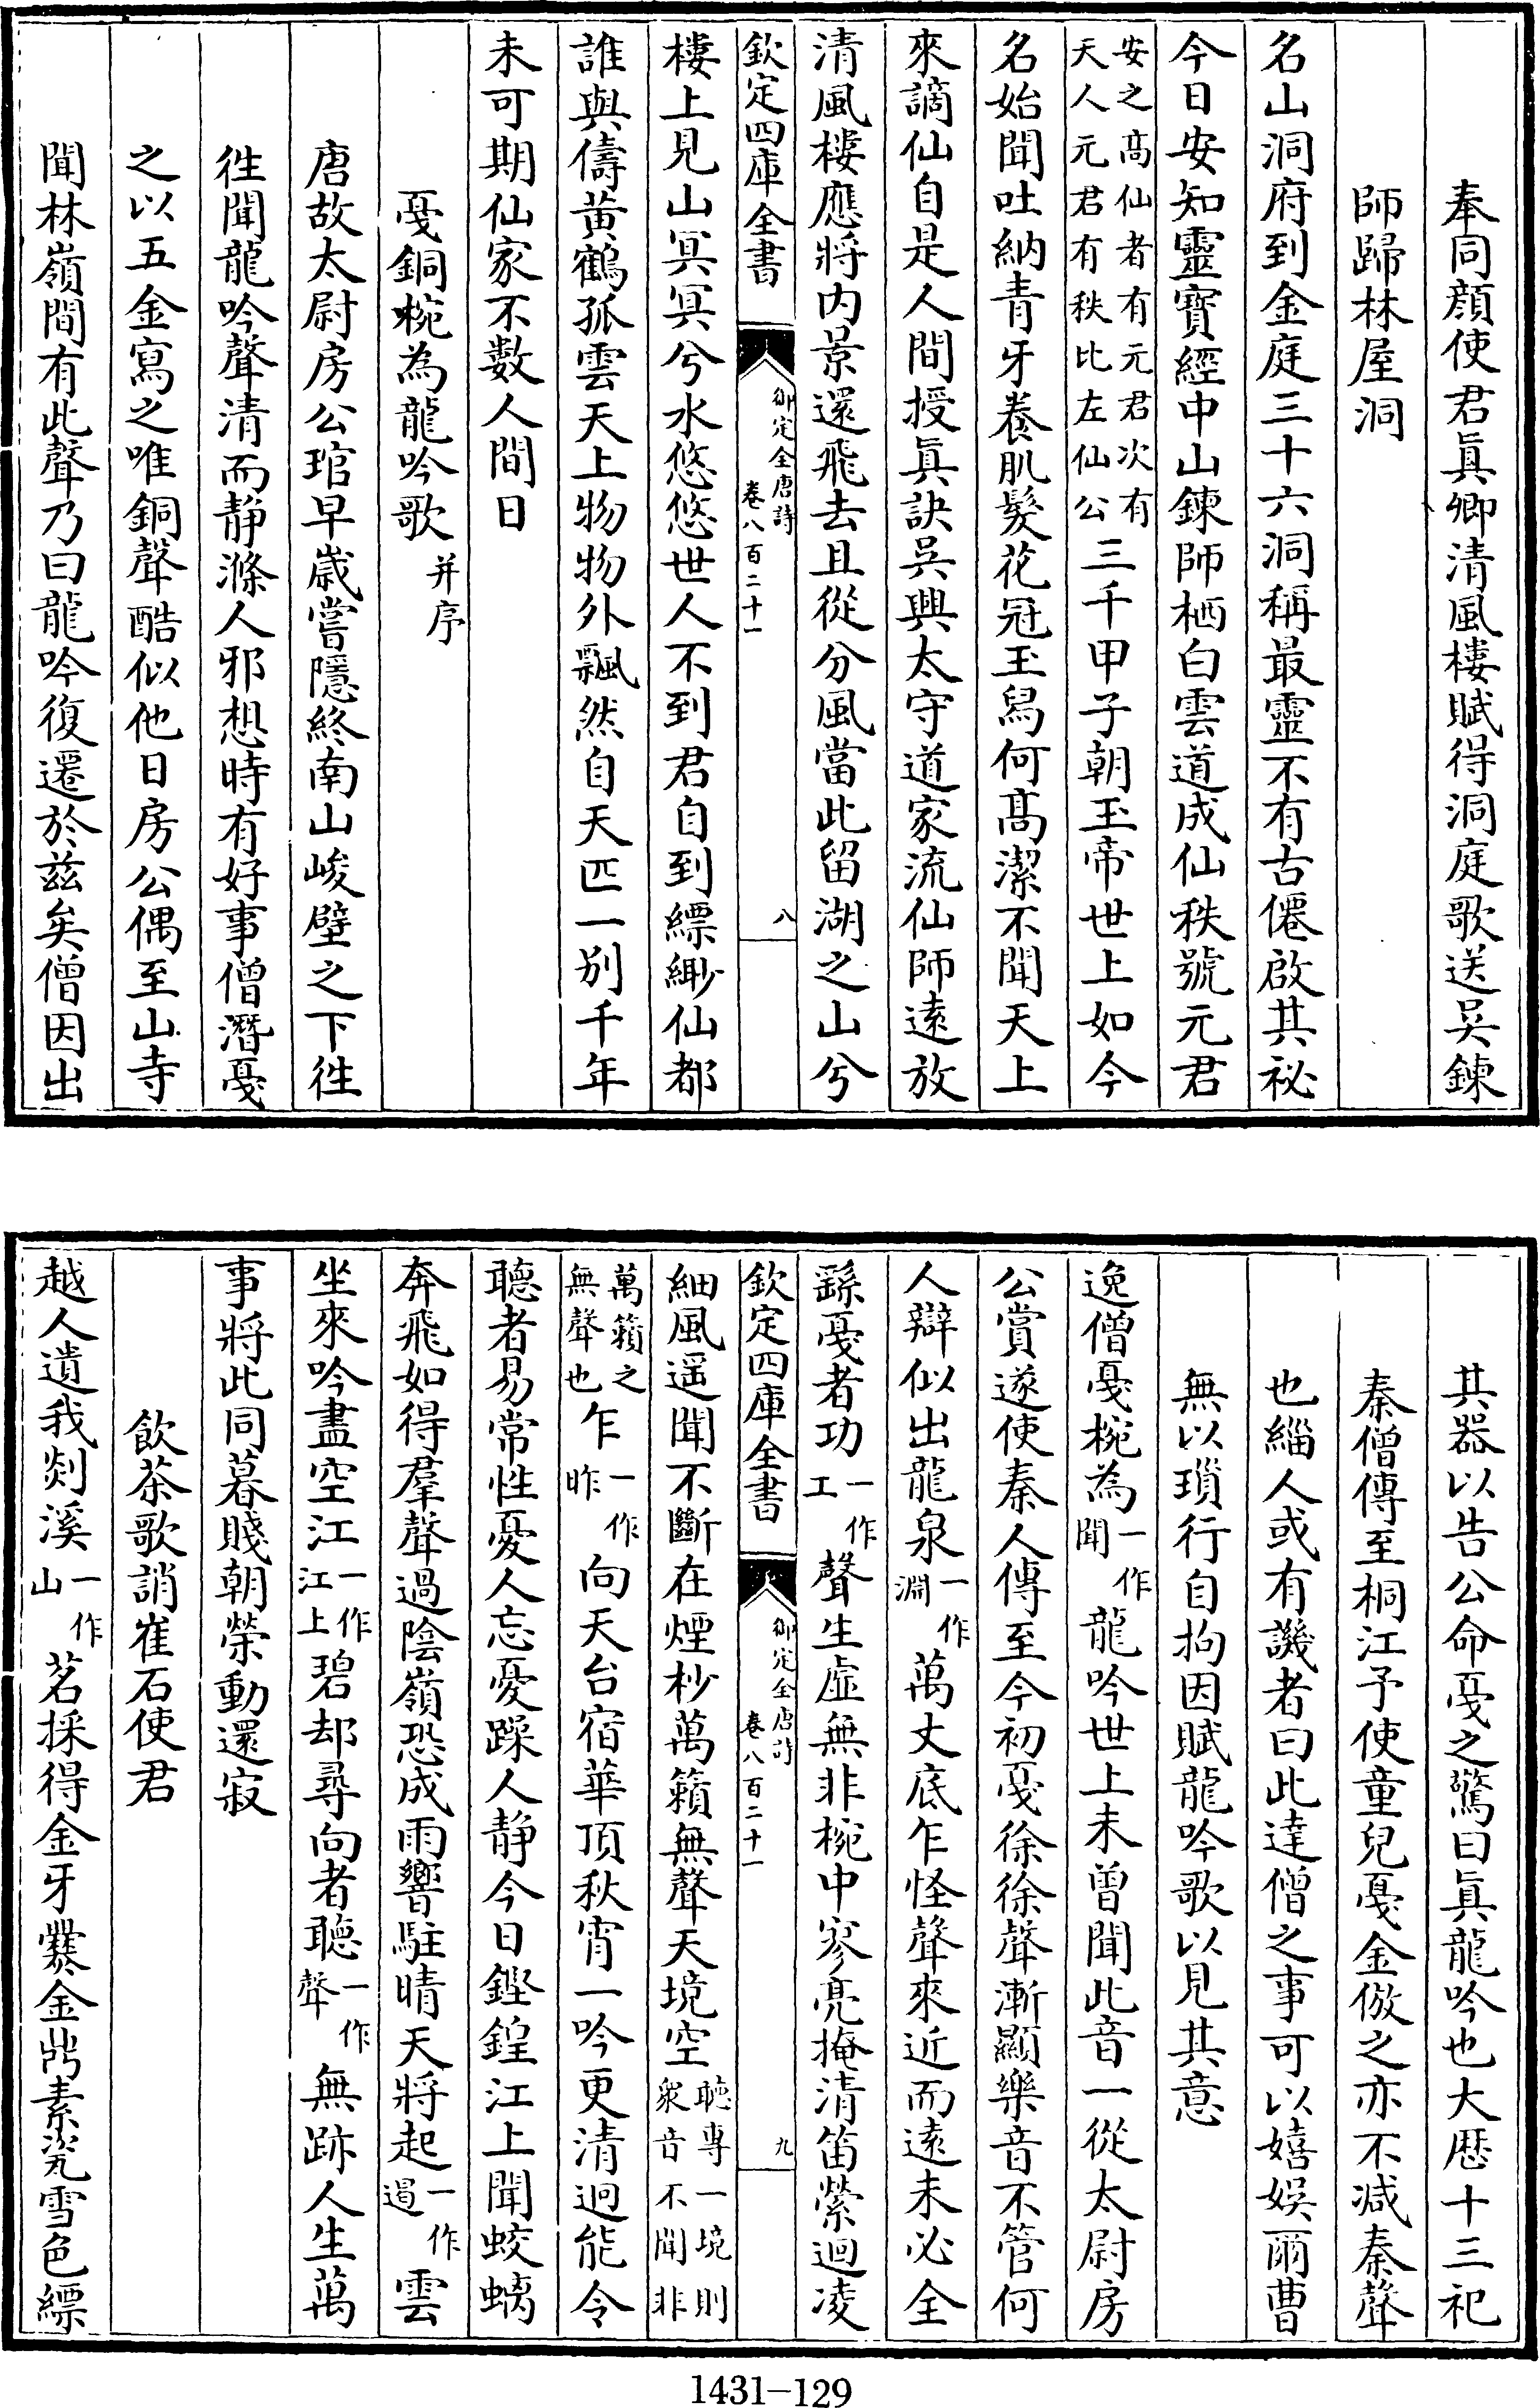 奉同顔使君真卿清風樓賦得洞庭歌送吳鍊
師歸林屋洞
名山洞府到金庭三十六洞稱最靈不有古僊啟其祕
今日安知靈寶經中山鍊師栖白雲道成仙秩號元君
安之高仙者有元君次有
天人元君有秩比左仙公
三千甲子朝玉帝世上如今
名始聞吐納青牙養肌髮花冠玉舄何高潔不聞天上
來謫仙自是人間授真訣吳興太守道家流仙師遠放
清風樓應將内景還飛去且從分風當此留湖之山兮
欽定四庫全書
御定全唐詩
卷八百二十一
八
樓上見山冥冥兮水悠悠世人不到君自到縹緲仙都
誰與儔黄鶴孤雲天上物物外飄然自天匹一別千年
未可期仙家不數人間日
戛銅椀為龍吟歌并序
唐故太尉房公琯早嵗嘗隱終南山峻壁之下往
往聞龍吟聲清而静滌人邪想時有好事僧潛戛
之以五金寫之唯銅聲酷似他日房公偶至山寺
聞林嶺間有此聲乃曰龍吟復遷於兹矣僧因出
其器以告公命戛之驚曰真龍吟也大厯十三祀
秦僧傳至桐江予使童兒戛金倣之亦不減秦聲
也緇人或有譏者曰此達僧之事可以嬉娛爾曹
無以瑣行自拘因賦龍吟歌以見其意
逸僧戛椀為一作聞龍吟世上未曾聞此音一從太尉房
公賞遂使秦人傳至今初戛徐徐聲漸顯樂音不管何
人辯似出龍泉一作淵萬丈底乍怪聲來近而遠未必全
繇戛者功一作工聲生虛無非椀中寥亮掩清笛縈迴凌
欽定四庫全書
御定全唐詩
卷八百二十一
九
細風遥聞不斷在煙杪萬籟無聲天境空聽專一境則衆音不聞非
萬籟之無聲也乍一作昨向天台宿華頂秋宵一吟更清迥能令
聽者易常性憂人忘憂躁人静今日鏗鍠江上聞蛟螭
奔飛如得羣聲過陰嶺恐成雨響駐晴天將起一作遏雲
坐來吟盡空江一作江上碧却尋向者聽一作聲無跡人生萬
事將此同暮賤朝榮動還寂
飲茶歌誚崔石使君
越人遺我剡溪一作山茗採得金牙爨金鼎素瓷雪色縹
1431—129